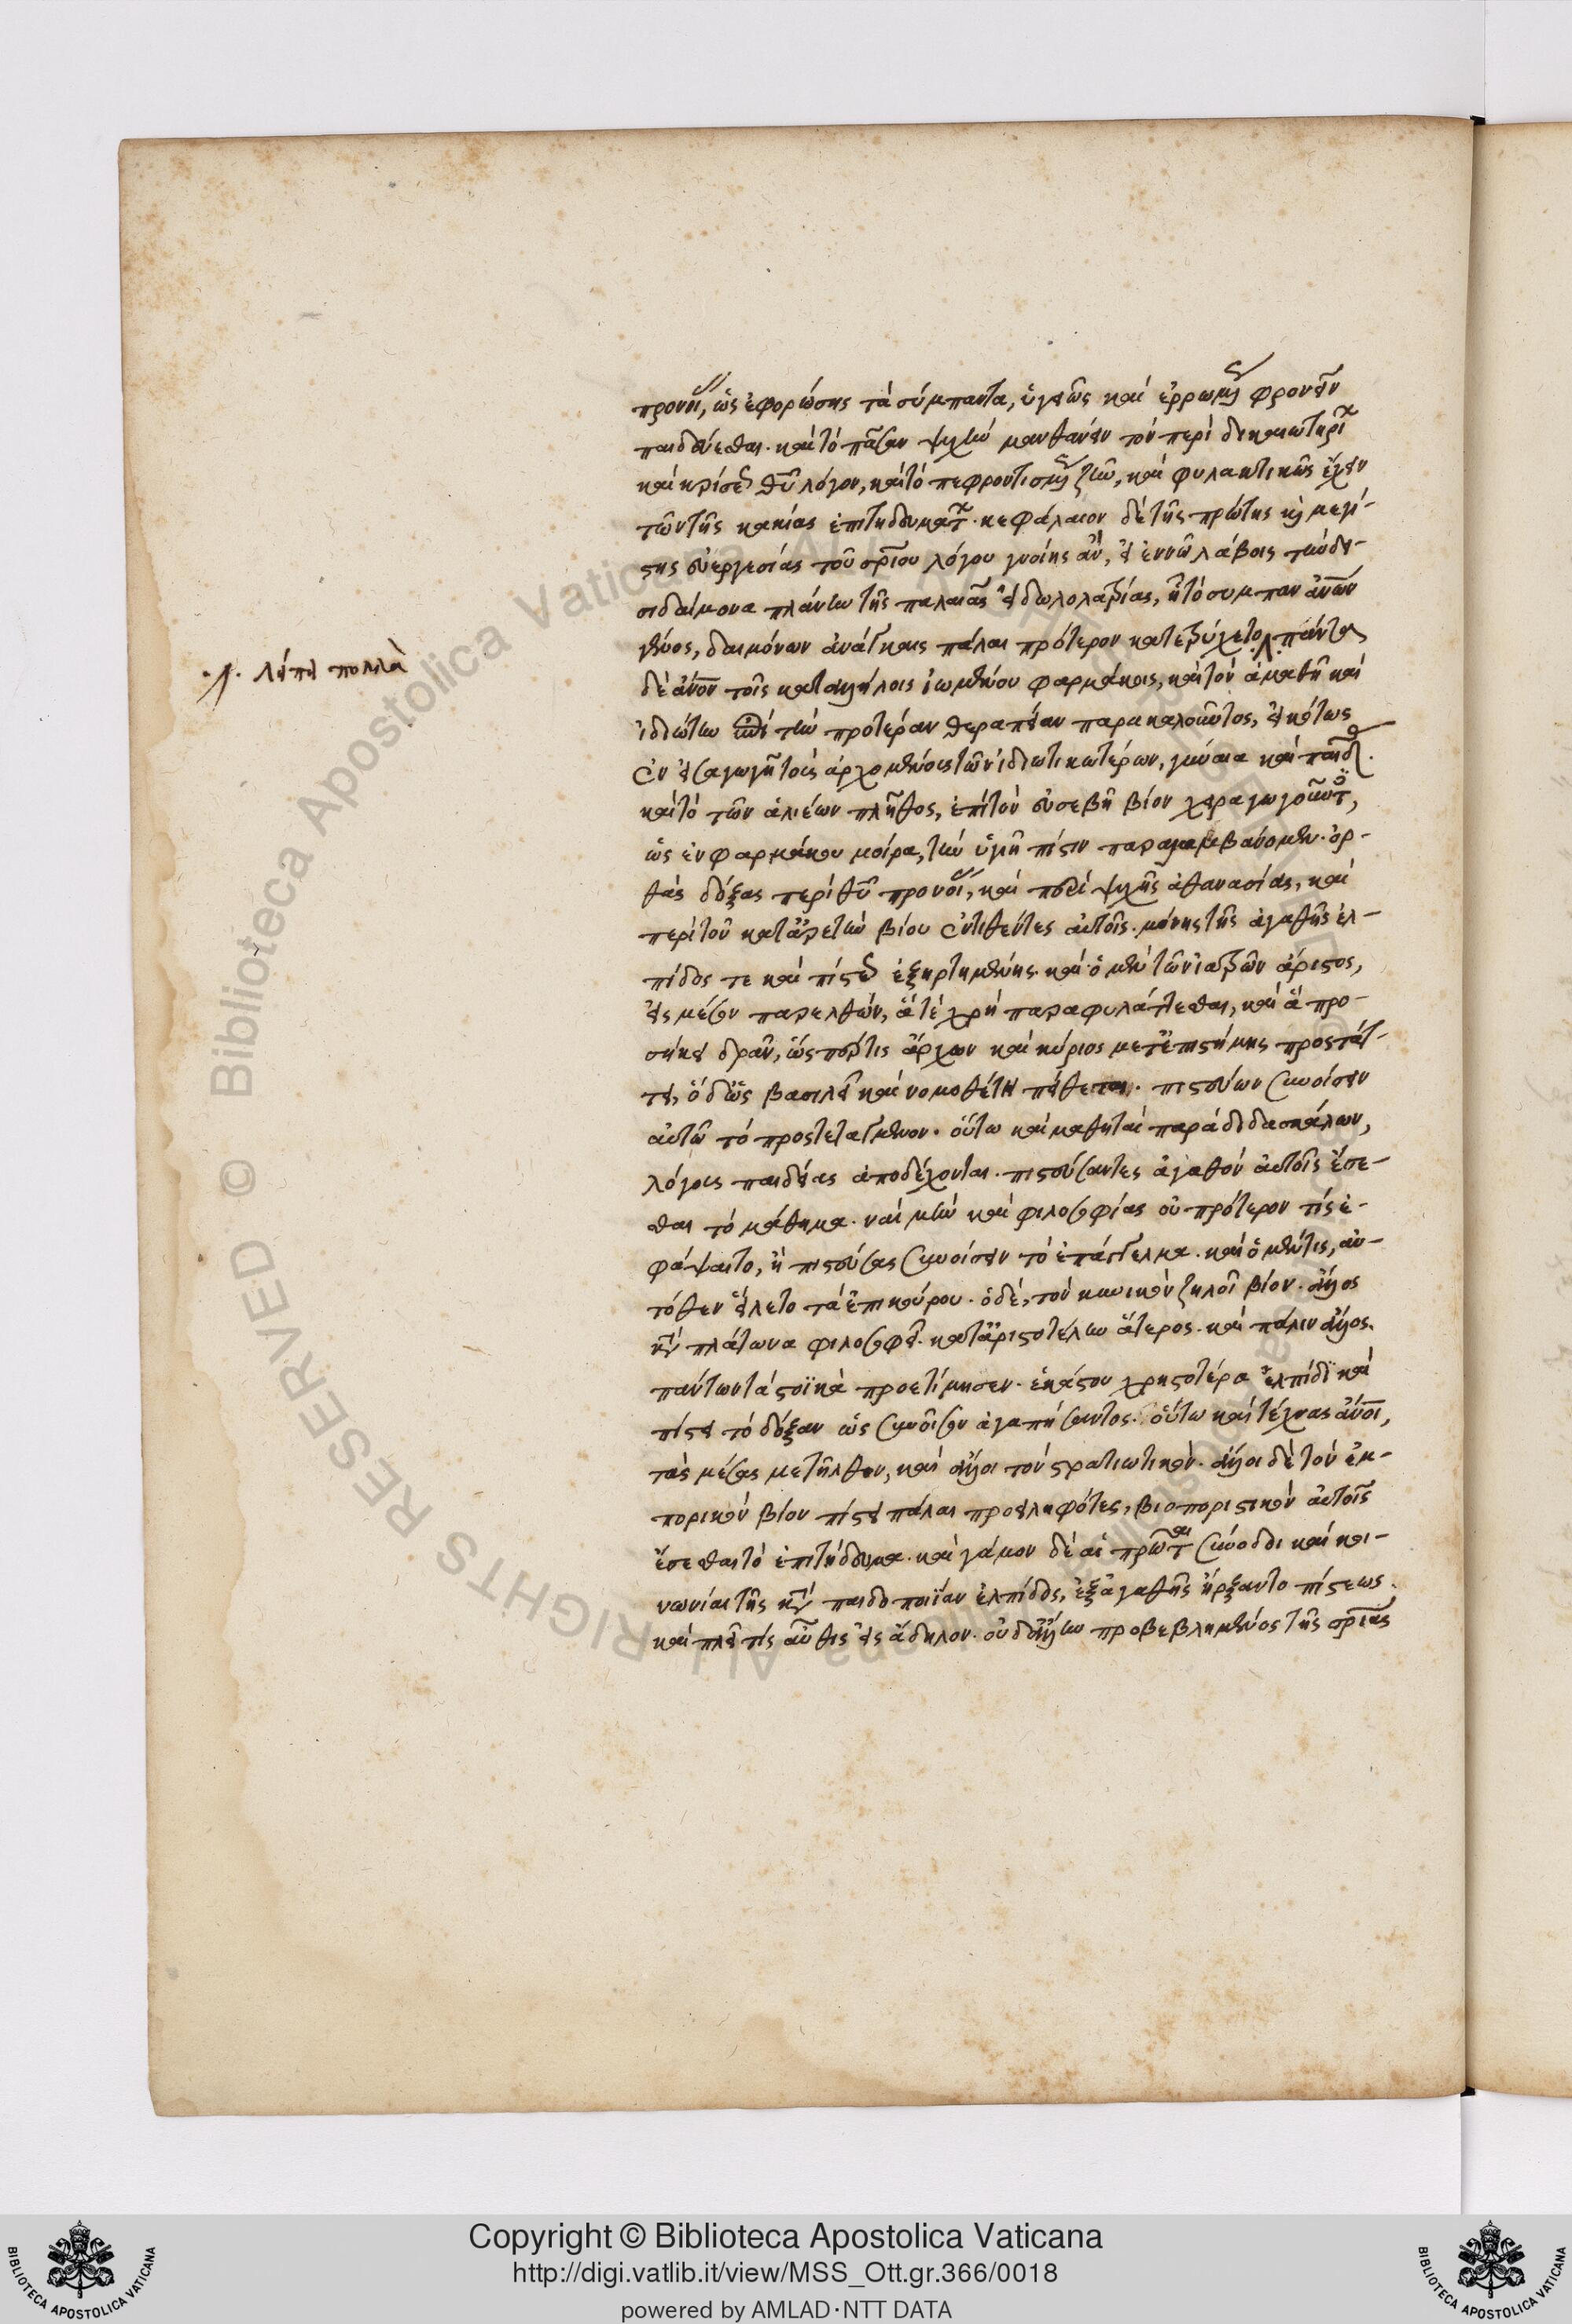 προνοίας, ὡς ἐφορώσης τὰ σύμπαντα, ὑγιῶς καὶ ἐρρωμένως φρονεῖν
παιδεύεσθαι. καὶ τὸ πᾶσαν ψυχὴν μανθάνειν τὸν περὶ δικαιωτηρίων
καὶ κρίσεως θῦ λόγον, καὶ τὸ πεφροντισμένως ζῆν, καὶ φυλακτικῶς ἔχειν
τῶν τῆς κακίας ἐπιτηδευμάτων. κεφάλαιον δὲ τῆς πρώτης κỳ μεγί-
στης εὐεργεσίας τοῦ σρίου λόγου γνοίης ἂν, εἰ ἐν νῶ λάβοις τὴν δει-
σιδαίμονα πλάνην τῆς παλαιᾶς εἰδωλολατρίας, ἧ τὸ συμπαν ἀνων
γένος, δαιμόνων ἀνάγκαις πάλαι πρότερον κατετρύχετο. πάντων
δὲ ἀνον τοῖς καταλλήλοις ἰωμένου φαρμάκοις, καὶ τὸν ἀμαθῆ καὶ
ἰδιώτην ἐπὶ τὴν προτέραν θεραπείαν παρακαλοῦντος, εἰκότως
ἐν εἰσαγωγῇ τοῖς ἀρχομένοις τῶν ἰδιωτικωτέρων, γύναια καὶ παιδ
καὶ τὸ τῶν ἁλιέων πλῆθος, ἐπὶ τὸν εὐσεβῆ βίον χειραγωγοῦντες,
ὡς ἐν φαρμάκου μοίρα, τὴν ὑγιῆ πίστιν παραλαμβάνομεν. ὀρ-
θὰς δόξας περὶ θῦ προνοίας, καὶ περὶ ψυχῆς ἀθανασίας, καὶ
περὶ τοῦ κατ' ἀρετὴν βίου ἐντιθέντες αὐτοῖς. μόνης τῆς ἀγαθῆς ἐλ-
πίδος τε καὶ πίστεως ἐξηρτημένης. καὶ ὁ μὲν τῶν ἰατρῶν ἄριστος,
εἰς μέσον παρελθών, ἅ τὲ χρὴ παραφυλάττεσθαι, καὶ ἃ προ-
σήκει δρᾶν, ὥσπερ τις ἄρχων καὶ κύριος μετ' ἐπιστήμης προστάτ-
τει, ὁ δ' ὡς βασιλεῖ καὶ νομοθέτη πείθεται. πιστεύων συνοίσειν
αὐτῶ τὸ προστεταγμένον. οὕτω καὶ μαθηταὶ παρὰ διδασκάλων,
λόγοις παιδείας ἀποδέχονται. πιστεύσαντες ἀγαθὸν αὐτοῖς ἔσε-
σθαι τὸ μάθημα. ναὶ μὴν καὶ φιλοσοφίας οὐ πρότερον τὶς ἐ-
φάψαιτο, ἢ πιστεύσας συνοίσειν τὸ ἐπάγγελμα. καὶ ὁ μέν τις, αὐ-
τόθεν εἵλετο τὰ ἐπικούρου. ὁ δὲ, τὸν κυνικὸν ζηλοῖ βίον. ἄλλος
κατὰ πλάτωνα φιλοσοφεῖ. κατ' ἀριστοτέλην ἅτερος. καὶ πάλιν ἄλλος
πάντων τὰ στοϊκὰ προετίμησεν. ἑκάστου χρηστοτέρα ἐλπίδι καὶ
πίστει τὸ δόξαν ὡς συνοῖσον ἀγαπήσαντος. οὕτω καὶ τέχνας ἀνοι,
τὰς μέσας μετῆλθον, καὶ ἄλλοι τὸν στρατιωτικὸν. ἄλλοι δὲ τὸν ἐμ-
πορικὸν βίον πίστει πάλαι προειληφότες, βιοποριστικὸν αὐτοῖς
ἔσεσθαι τὸ ἐπιτήδευμα. καὶ γάμον δὲ αἱ πρῶται σύνοδοι καὶ κοι-
νωνίαι τῆς κατὰ παιδοποιΐαν ἐλπίδος, ἐξ ἀγαθῆς ἤρξαντο πίστεως.
καὶ πλεῖ τὶς αὖθις εἰς ἄδηλον. οὐδ' ἄλλην προβεβλημένος τῆς σρίας
·/· λείπει πολλὰ
Copyright © Biblioteca Apostolica Vaticana
http://digi.vatlib.it/view/MSS_Ott.gr.366/0018
powered by AMLAD·NTT DATA